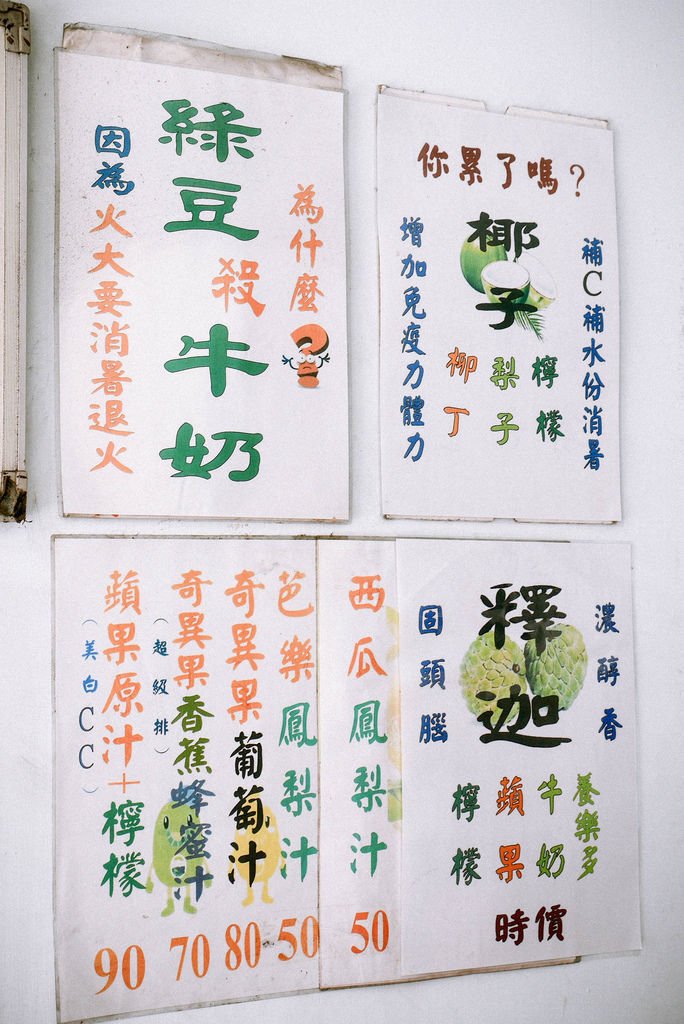 為什麼
綠豆殺牛奶
因為火大要消暑退火
你累了嗎？
補C補水份消暑
椰子
檸檬
梨子
柳丁
增加免疫力體力
西瓜鳳梨汁
50
芭樂鳳梨汁
50
奇異果葡萄汁
80
奇異果香蕉蜂蜜汁
（超級排）
70
蘋果原汁＋檸檬
（美白CC）
90
濃醇香
釋迦
固頭腦
養樂多
牛奶
蘋果
檸檬
時價